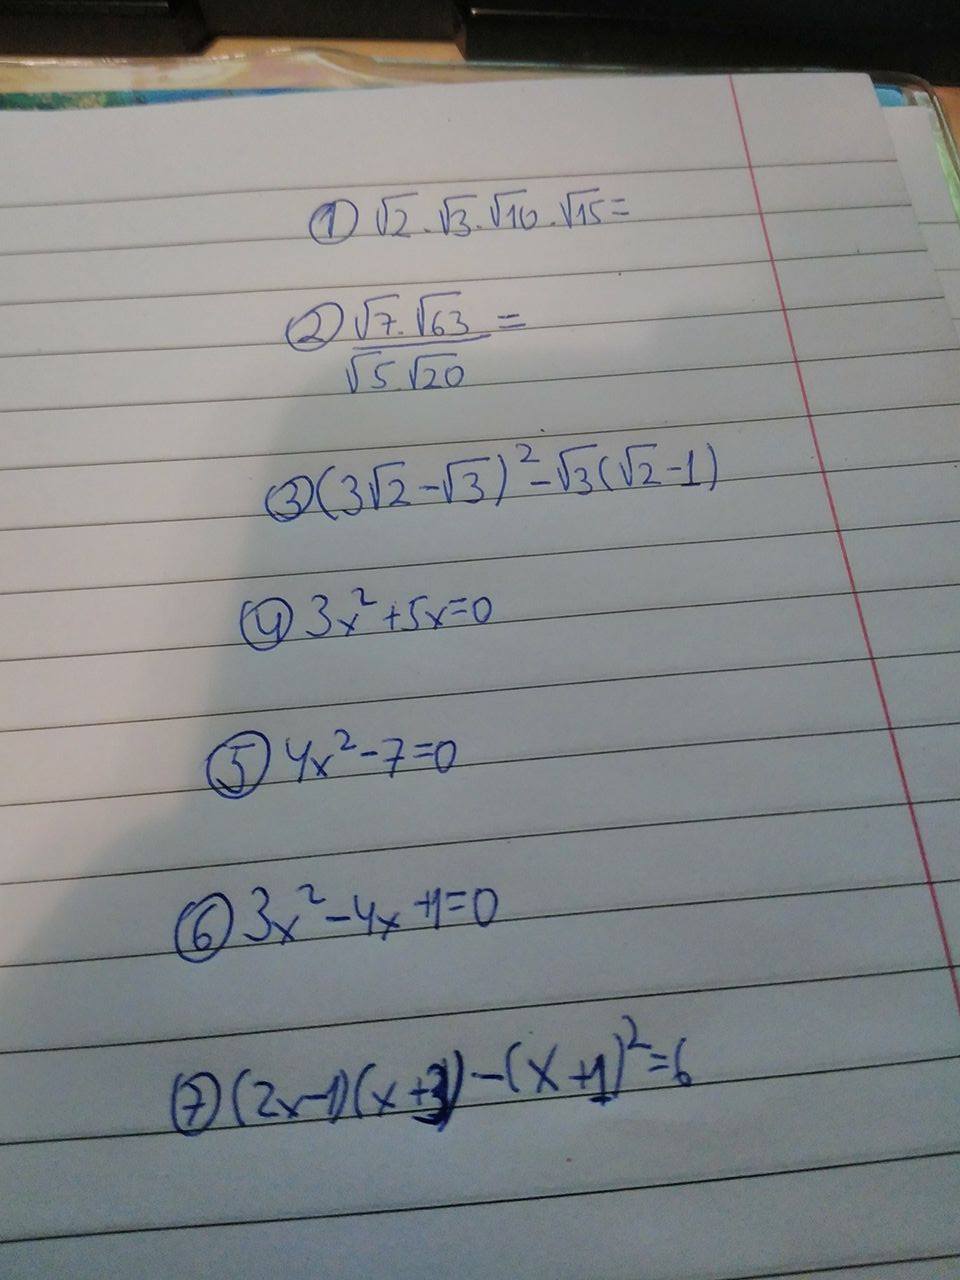 ① √2 . √3 . √10 . √15 =
② √7 . √63 =
√5 √20
③ (3√2 - √3)² - √3(√2 - 1)
④ 3x² + 5x = 0
⑤ 4x² - 7 = 0
⑥ 3x² - 4x + 1 = 0
⑦ (2x - 1)(x + 3) - (x + 1)² = 6